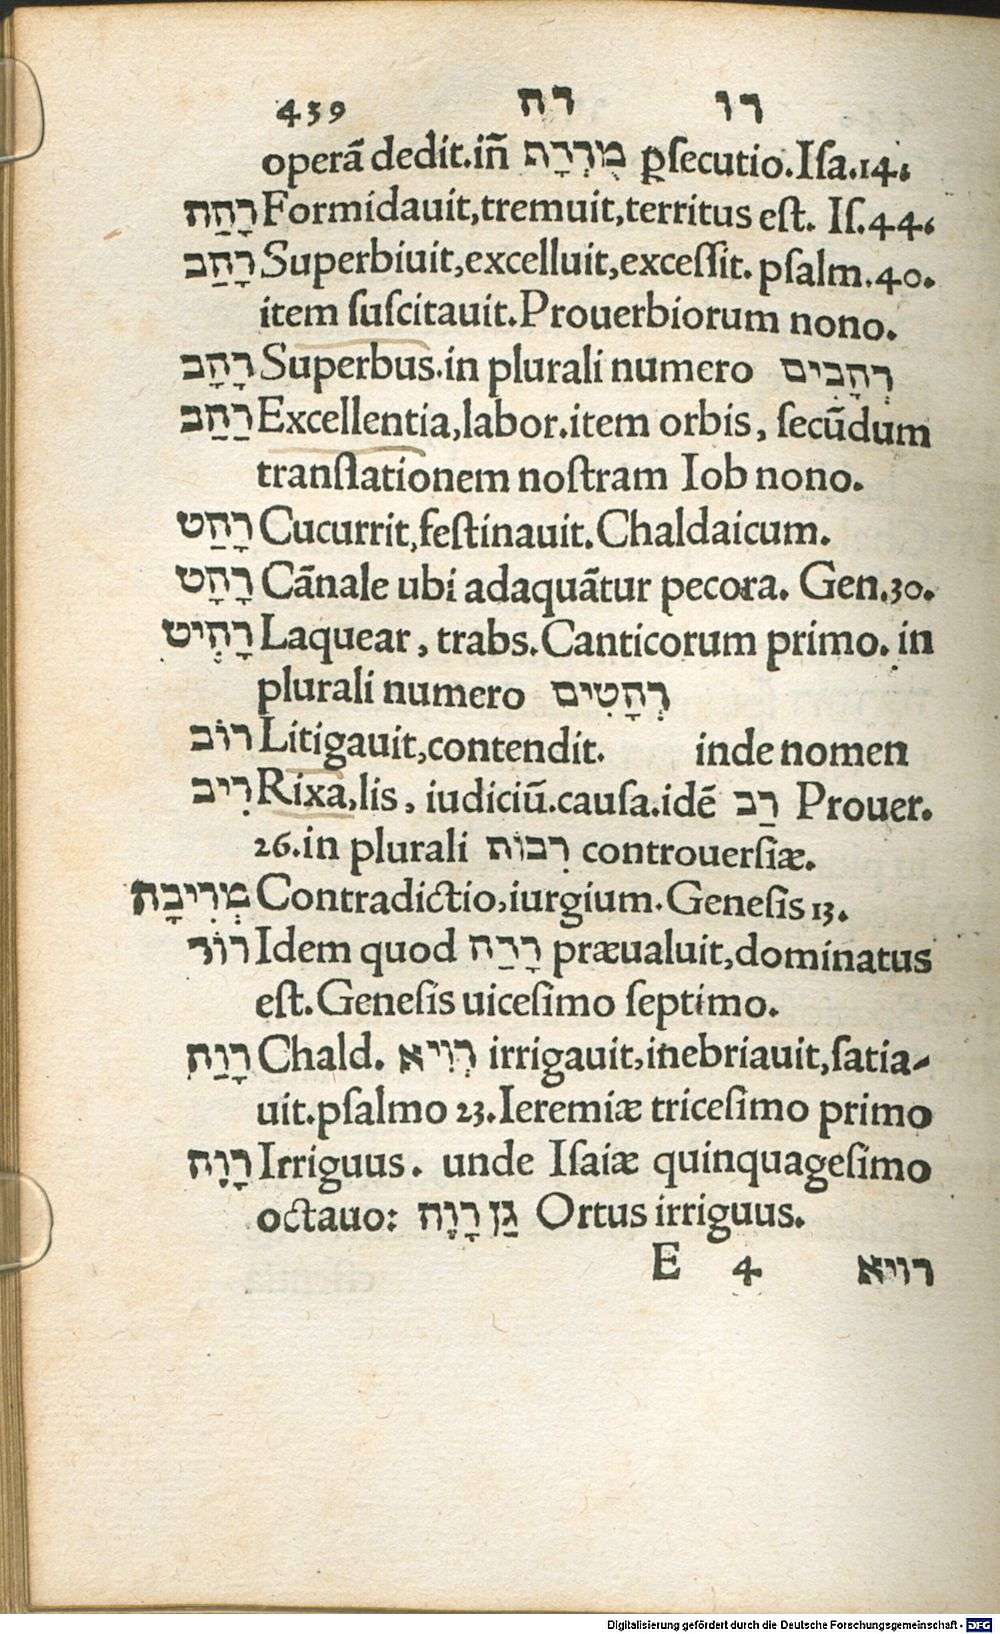 439 רה רו
operā dedit.iñ מֻרְדָה ꝑsecutio.Isa.14.
רָהַה Formidauit,tremuit,territus est. Is.44.
רָהַב Superbiuit,excelluit,excessit. psalm.40.
item suscitauit.Prouerbiorum nono.
רָהָב Superbus.in plurali numero רְהָבִים
רַהַב Excellentia,labor.item orbis, secūdum
translationem nostram Iob nono.
רָהַט Cucurrit,festinauit.Chaldaicum.
רָהָט Cānale ubi adaquātur pecora. Gen.30.
רָהְיט Laquear, trabs.Canticorum primo. in
plurali numero רְהָטִים
רוֹב Litigauit,contendit. inde nomen
רִיב Rixa,lis, iudiciū.causa.idē רַב Prouer.
26.in plurali רִבוֹת controuersiæ.
מְרִיבָה Contradictio,iurgium.Genesis 13.
רוֹד Idem quod רָדַה præualuit,dominatus
est.Genesis uicesimo septimo.
רָוַה Chald. רְוִיא irrigauit,inebriauit,satia-
uit.psalmo 23.Ieremiæ tricesimo primo
רָוֶה Irriguus. unde Isaiæ quinquagesimo
octauo: גַן רָוֶה Ortus irriguus.
E 4 רויא
Digitalisierung gefördert durch die Deutsche Forschungsgemeinschaft - DFG